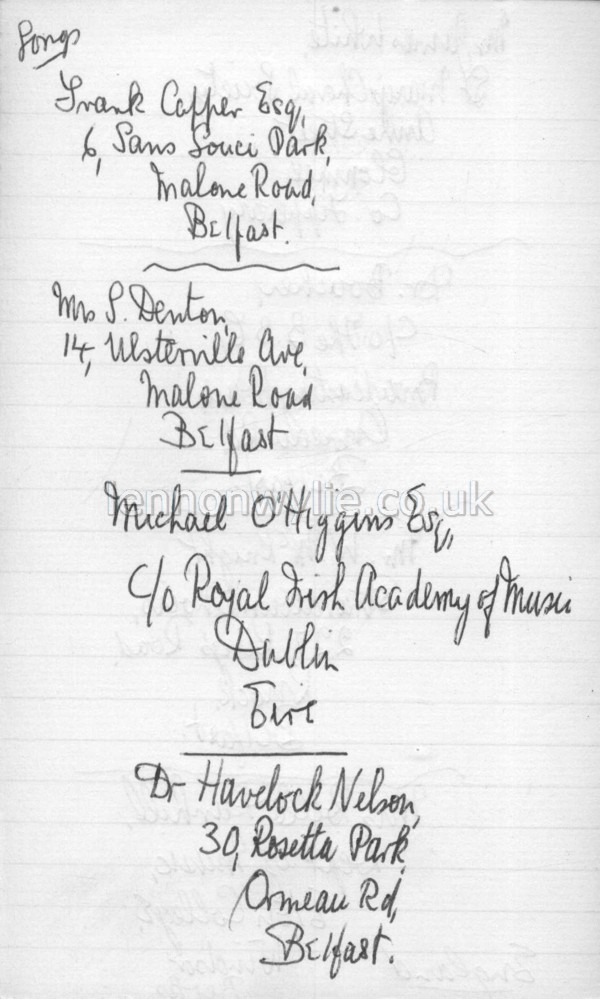 Songs
Frank Capper Esq,
6, Sans Souci Park,
Malone Road,
Belfast.
Mrs S. Denton,
14, Ulsterville Ave,
Malone Road
Belfast
lennonwylie.co.uk
Michael O'Higgins Esq,
C/o Royal Irish Academy of Music
Dublin
Eire
Dr Havelock Nelson,
30, Rosetta Park,
Ormeau Rd,
Belfast.